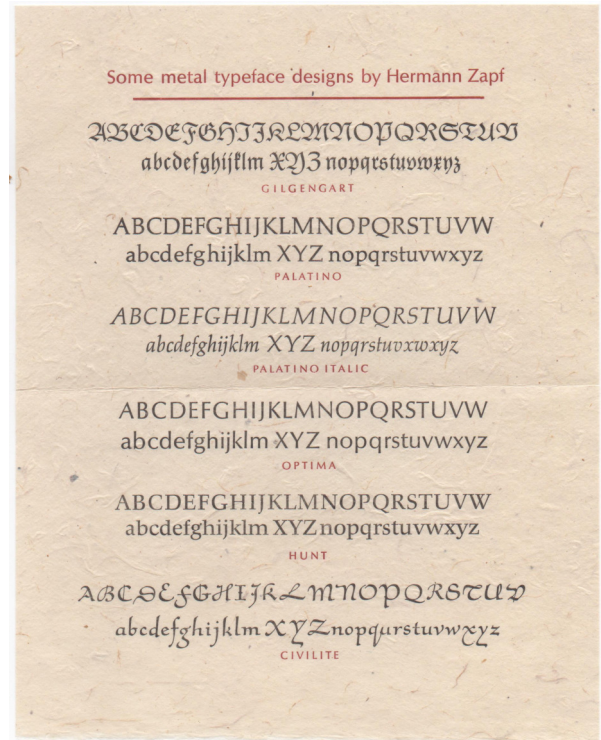 Some metal typeface designs by Hermann Zapf
ABCDEFGHIJKLMNOPQRSTUV
abcdefghijklm XYZ nopqrstuvwxyz
GILGENGART
ABCDEFGHIJKLMNOPQRSTUVW
abcdefghijklm XYZ nopqrstuvwxyz
PALATINO
ABCDEFGHIJKLMNOPQRSTUVW
abcdefghijklm XYZ nopqrstuvxwxyz
PALATINO ITALIC
ABCDEFGHIJKLMNOPQRSTUVW
abcdefghijklm XYZ nopqrstuvwxyz
OPTIMA
ABCDEFGHIJKLMNOPQRSTUVW
abcdefghijklm XYZ nopqrstuvwxyz
HUNT
ABCDEFGHIJKLMNOPQRSTUV
abcdefghijklm XYZ nopqurstuvwxyz
CIVILITE